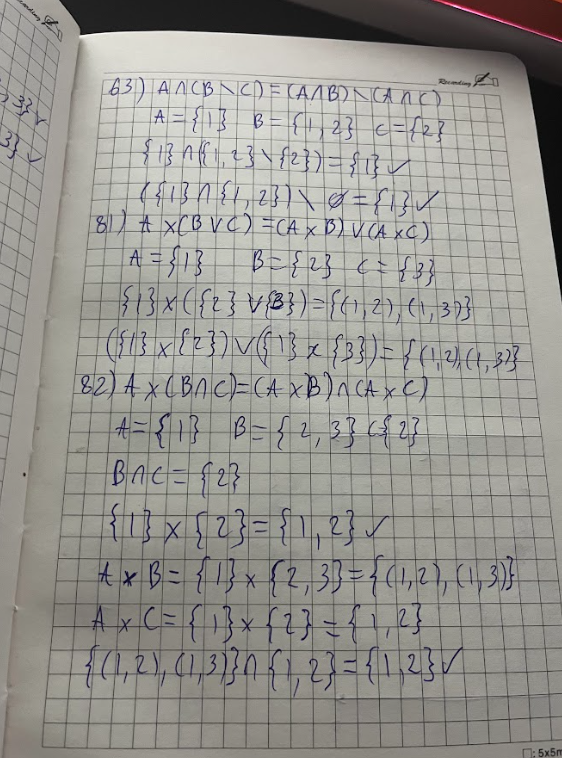 3} ✓
3} ✓
Recording
63) A∩(B\C)=(A∩B)\(A∩C)
A={1} B={1,2} C={2}
{1}∩({1,2}\{2})={1}✓
({1}∩{1,2})\ ∅={1}✓
81) A×(B∨C)=(A×B)∨(A×C)
A={1} B={2} C={3}
{1}×({2}∨{3})={(1,2),(1,3)}
({1}×{2})∨({1}×{3})={(1,2),(1,3)}
82) A×(B∩C)=(A×B)∩(A×C)
A={1} B={2,3} C{2}
B∩C={2}
{1}×{2}={1,2}✓
A×B={1}×{2,3}={(1,2),(1,3)}
A×C={1}×{2}={1,2}
{(1,2),(1,3)}∩{1,2}={1,2}✓
□: 5x5m